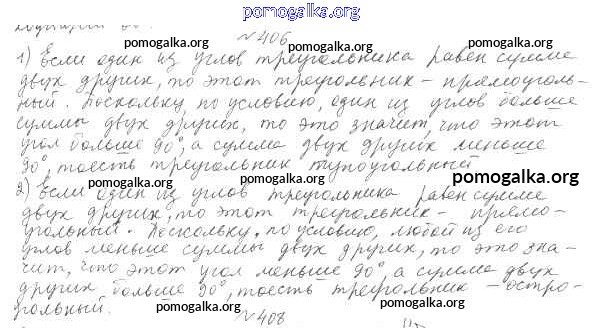 pomogalka.org
№406
1) Если один из углов треугольника равен сумме
pomogalka.org pomogalka.org
двух других, то этот треугольник – прямоуголь-
ный. Поскольку, по условию, один из углов больше
pomogalka.org pomogalka.org
суммы двух других, то это значит, что этот
угол больше 90°, а сумма двух других меньше
90°, тоесть треугольник тупоугольный
pomogalka.org pomogalka.org pomogalka.org
2) Если один из углов треугольника равен сумме
двух других, то этот треугольник – прямо-
pomogalka.org pomogalka.org
угольный. Поскольку, по условию, любой из его
углов меньше суммы двух других, то это зна-
pomogalka.org pomogalka.org
чит, что этот угол меньше 90°, а сумма двух
других больше 90°, тоесть треугольник – остро-
pomogalka.org pomogalka.org
угольный.
№408